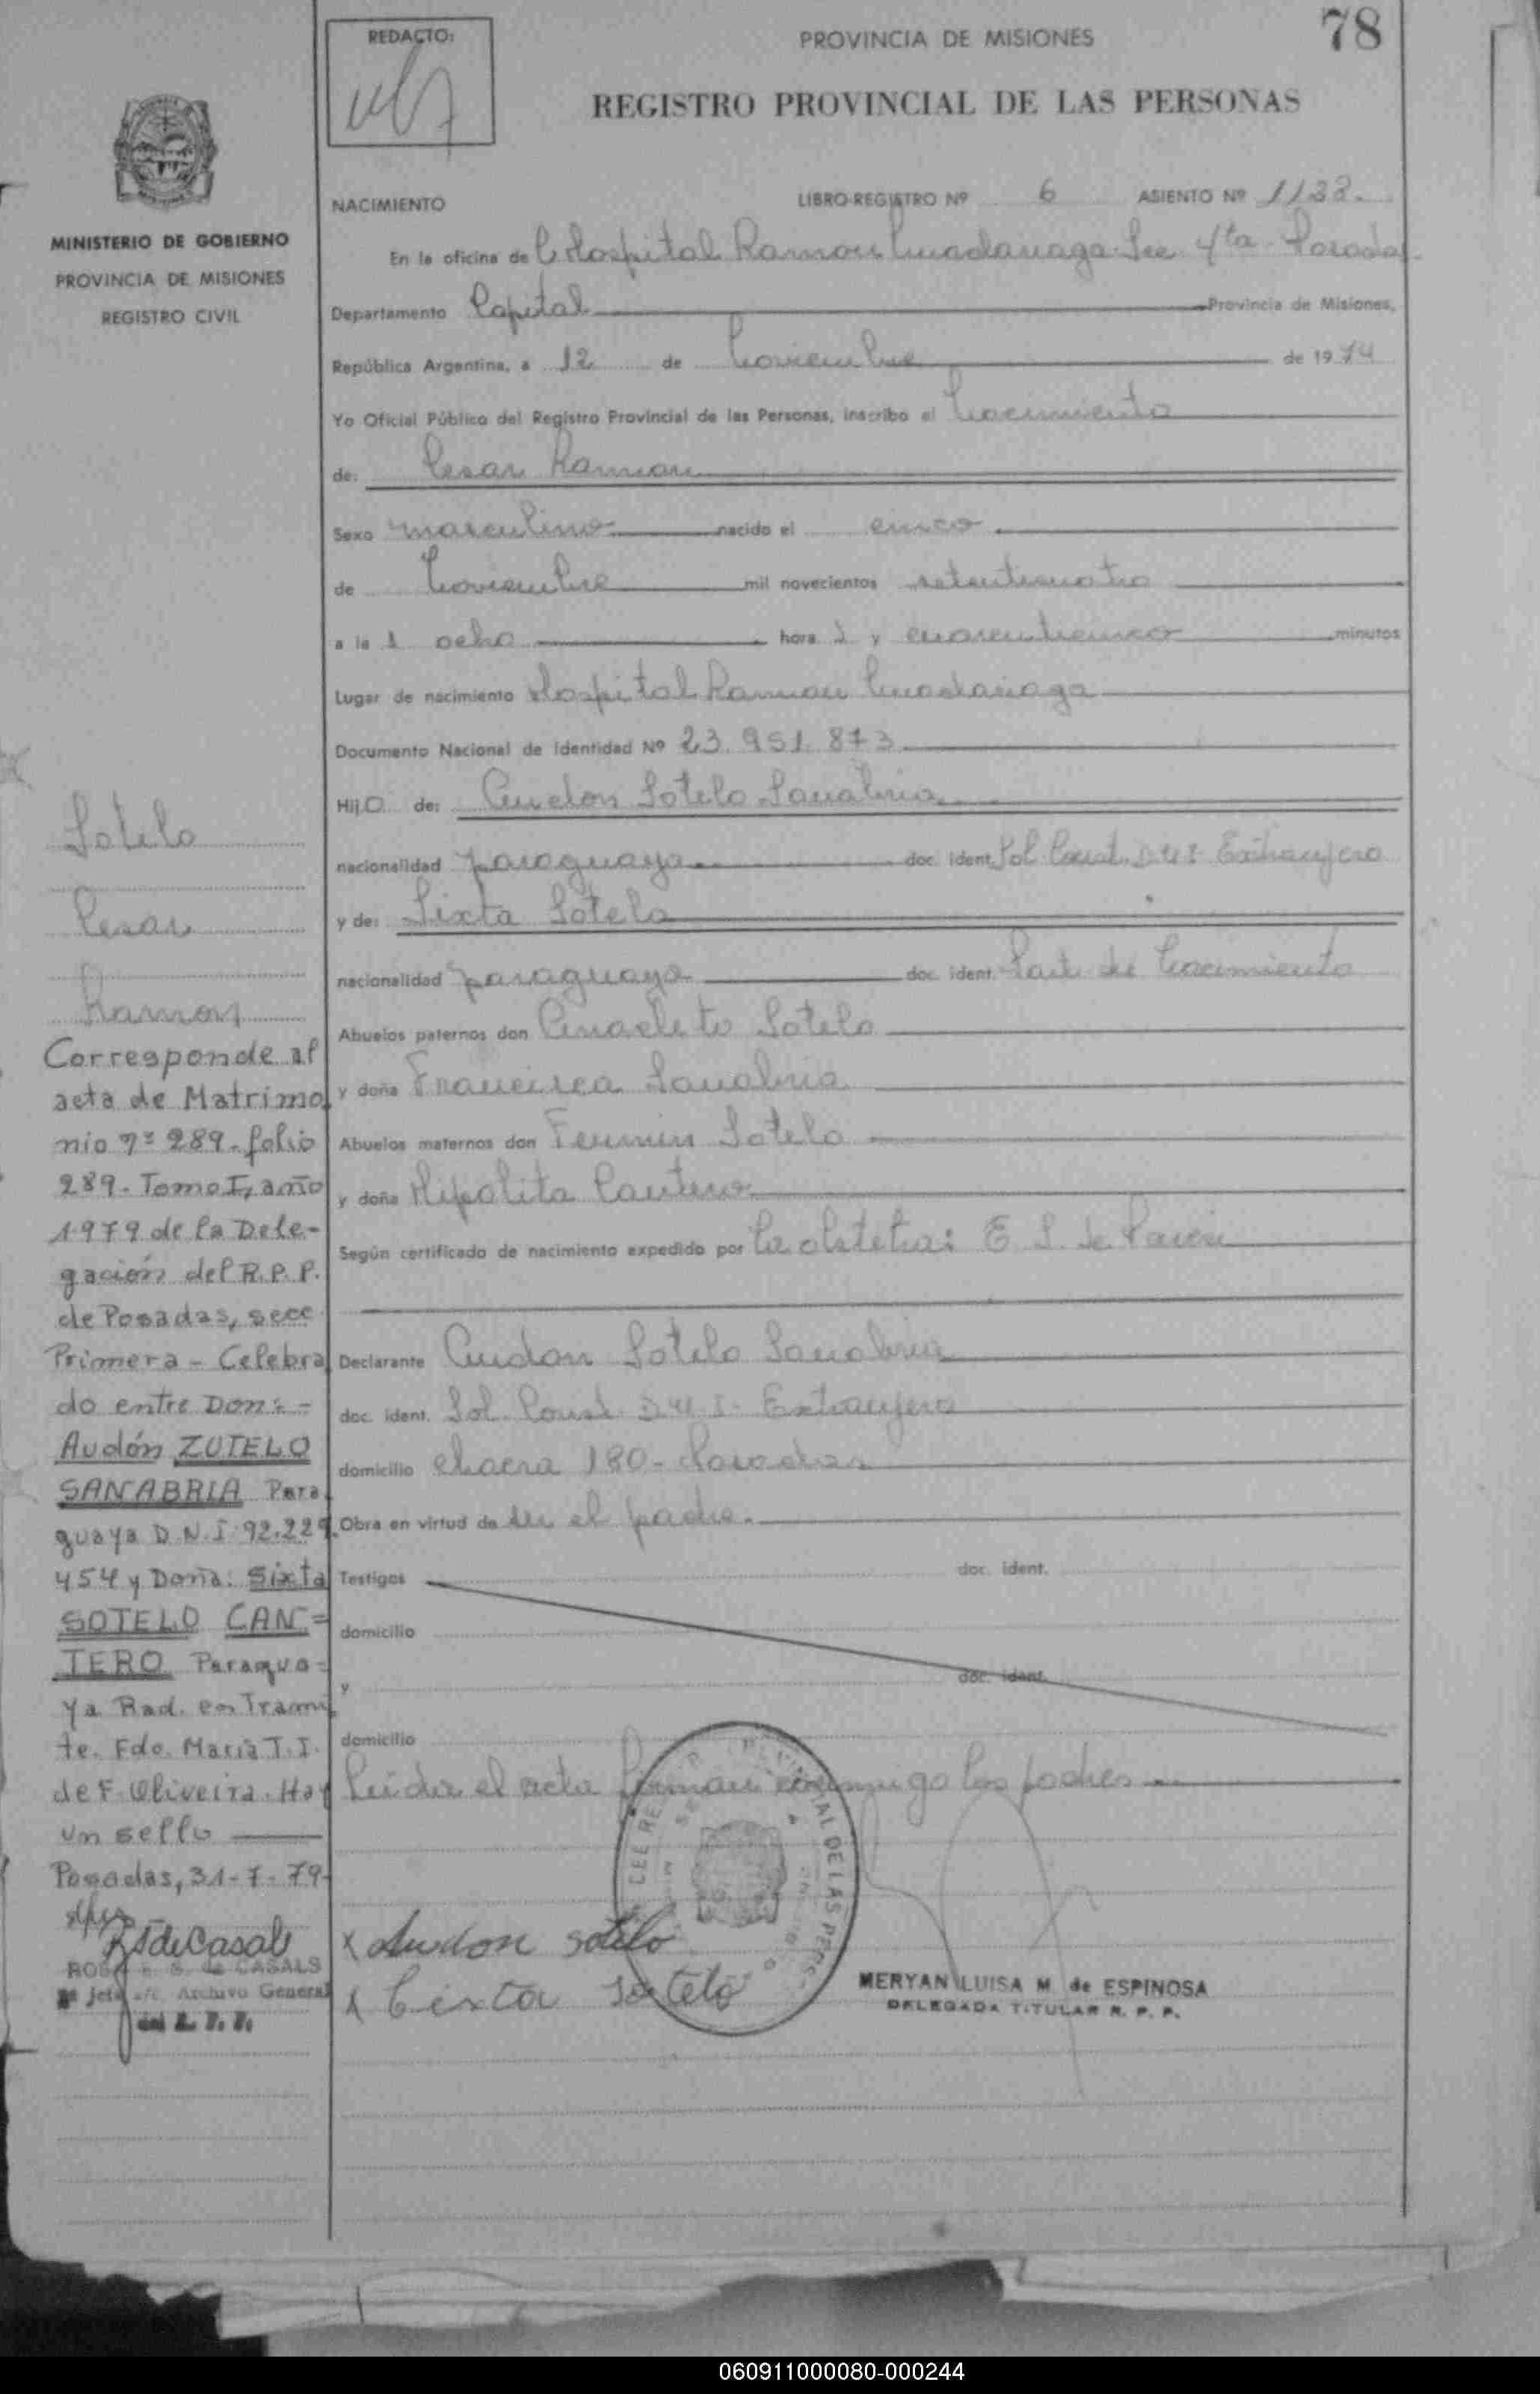 REDACTO:
PROVINCIA DE MISIONES
78
REGISTRO PROVINCIAL DE LAS PERSONAS
MINISTERIO DE GOBIERNO
PROVINCIA DE MISIONES
REGISTRO CIVIL
NACIMIENTO LIBRO-REGISTRO Nº 6 ASIENTO Nº
En la oficina de Hospital Ramon Madariaga Sec 4ta - Posadas
Departamento Capital Provincia de Misiones,
República Argentina, a 12 de Noviembre de 1974
Yo Oficial Público del Registro Provincial de las Personas, inscribo el Nacimiento
de: Cesar Ramon
Sexo masculino nacido el cinco
de Noviembre mil novecientos setenticuatro
a las ocho hora s y cuarenticinco minutos
Lugar de nacimiento Hospital Ramon Madariaga
Documento Nacional de Identidad Nº 23.951.873
Hijo de: Audon Sotelo Sanabria
nacionalidad paraguaya doc. ident. Sol. Const. D.U.I. Extranjero
y de: Sixta Sotelo
nacionalidad paraguaya doc. ident. Part. de Nacimiento
Abuelos paternos don Anacleto Sotelo
y doña Francisca Sanabria
Abuelos maternos don Fermin Sotelo
y doña Hipolita Cantero
Según certificado de nacimiento expedido por La obstetra: E. S. de
Declarante Audon Sotelo Sanabria
doc. ident. Sol. Const. D.U.I. Extranjero
domicilio chacra 180 - Posadas
Obra en virtud de ser el padre.
Testigos doc. ident.
domicilio
y doc. ident.
domicilio
Leida el acta firman conmigo los padres
x Audon sotelo
x Cixta sotelo
MERYAN LUISA M. de ESPINOSA
DELEGADA TITULAR R. P. P.
Sotelo
Cesar
Ramon
Corresponde al
acta de Matrimo
nio nº 289 - folio
289 - Tomo I, año
1979 de la Dele-
gación del R.P.P.
de Posadas, secc
Primera - Celebra
do entre Don: -
Audón ZOTELO
SANABRIA Para
guaya D.N.I. 92.229.
454 y Doña: Sixta
SOTELO CAN=
TERO Paragua-
ya Rad. en Trami
te. Fdo. María T. I.
de F. Oliveira. Hay
un sello
Posadas, 31-7-79
R S de Casals
ROSA E. S. de CASALS
Jefa a/c. Archivo General
del R. P. P.
060911000080-000244